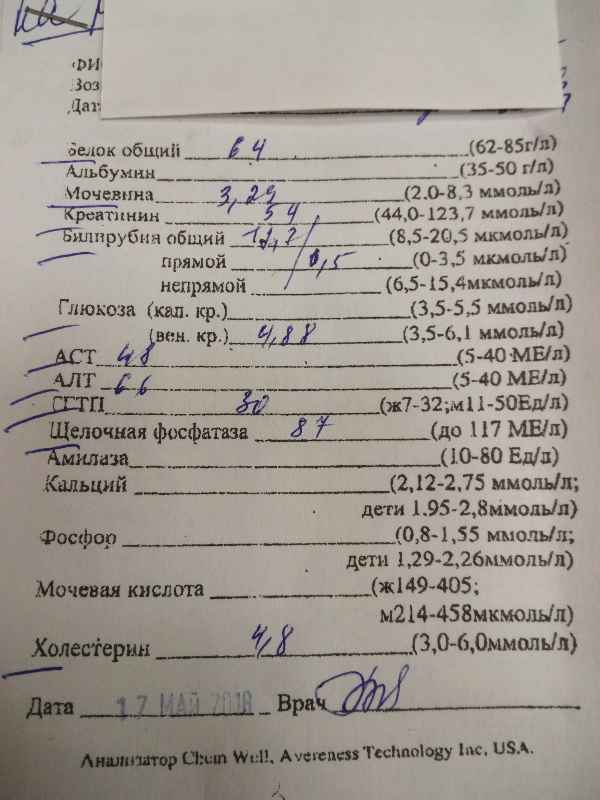 ФИО
Воз
Дат
Белок общий 64 (62-85г/л)
Альбумин (35-50 г/л)
Мочевина 3,29 (2.0-8,3 ммоль/л)
Креатинин 54 (44,0-123,7 ммоль/л)
Билирубин общий 12,7 (8,5-20,5 мкмоль/л)
прямой 1,5 (0-3,5 мкмоль/л)
непрямой (6,5-15,4мкмоль/л)
Глюкоза (кап. кр.) (3,5-5,5 ммоль/л)
(вен. кр.) 4,88 (3,5-6,1 ммоль/л)
АСТ 48 (5-40 МЕ/л)
АЛТ 66 (5-40 МЕ/л)
ГГТП 30 (ж7-32;м11-50Ед/л)
Щелочная фосфатаза 87 (до 117 МЕ/л)
Амилаза (10-80 Ед/л)
Кальций (2,12-2,75 ммоль/л;
дети 1.95-2,8ммоль/л)
Фосфор (0,8-1,55 ммоль/л;
дети 1,29-2,26ммоль/л)
Мочевая кислота (ж149-405;
м214-458мкмоль/л)
Холестерин 4,8 (3,0-6,0ммоль/л)
Дата 17 МАЙ Врач
Анализатор Chem Well, Avereness Technology Inc, USA.